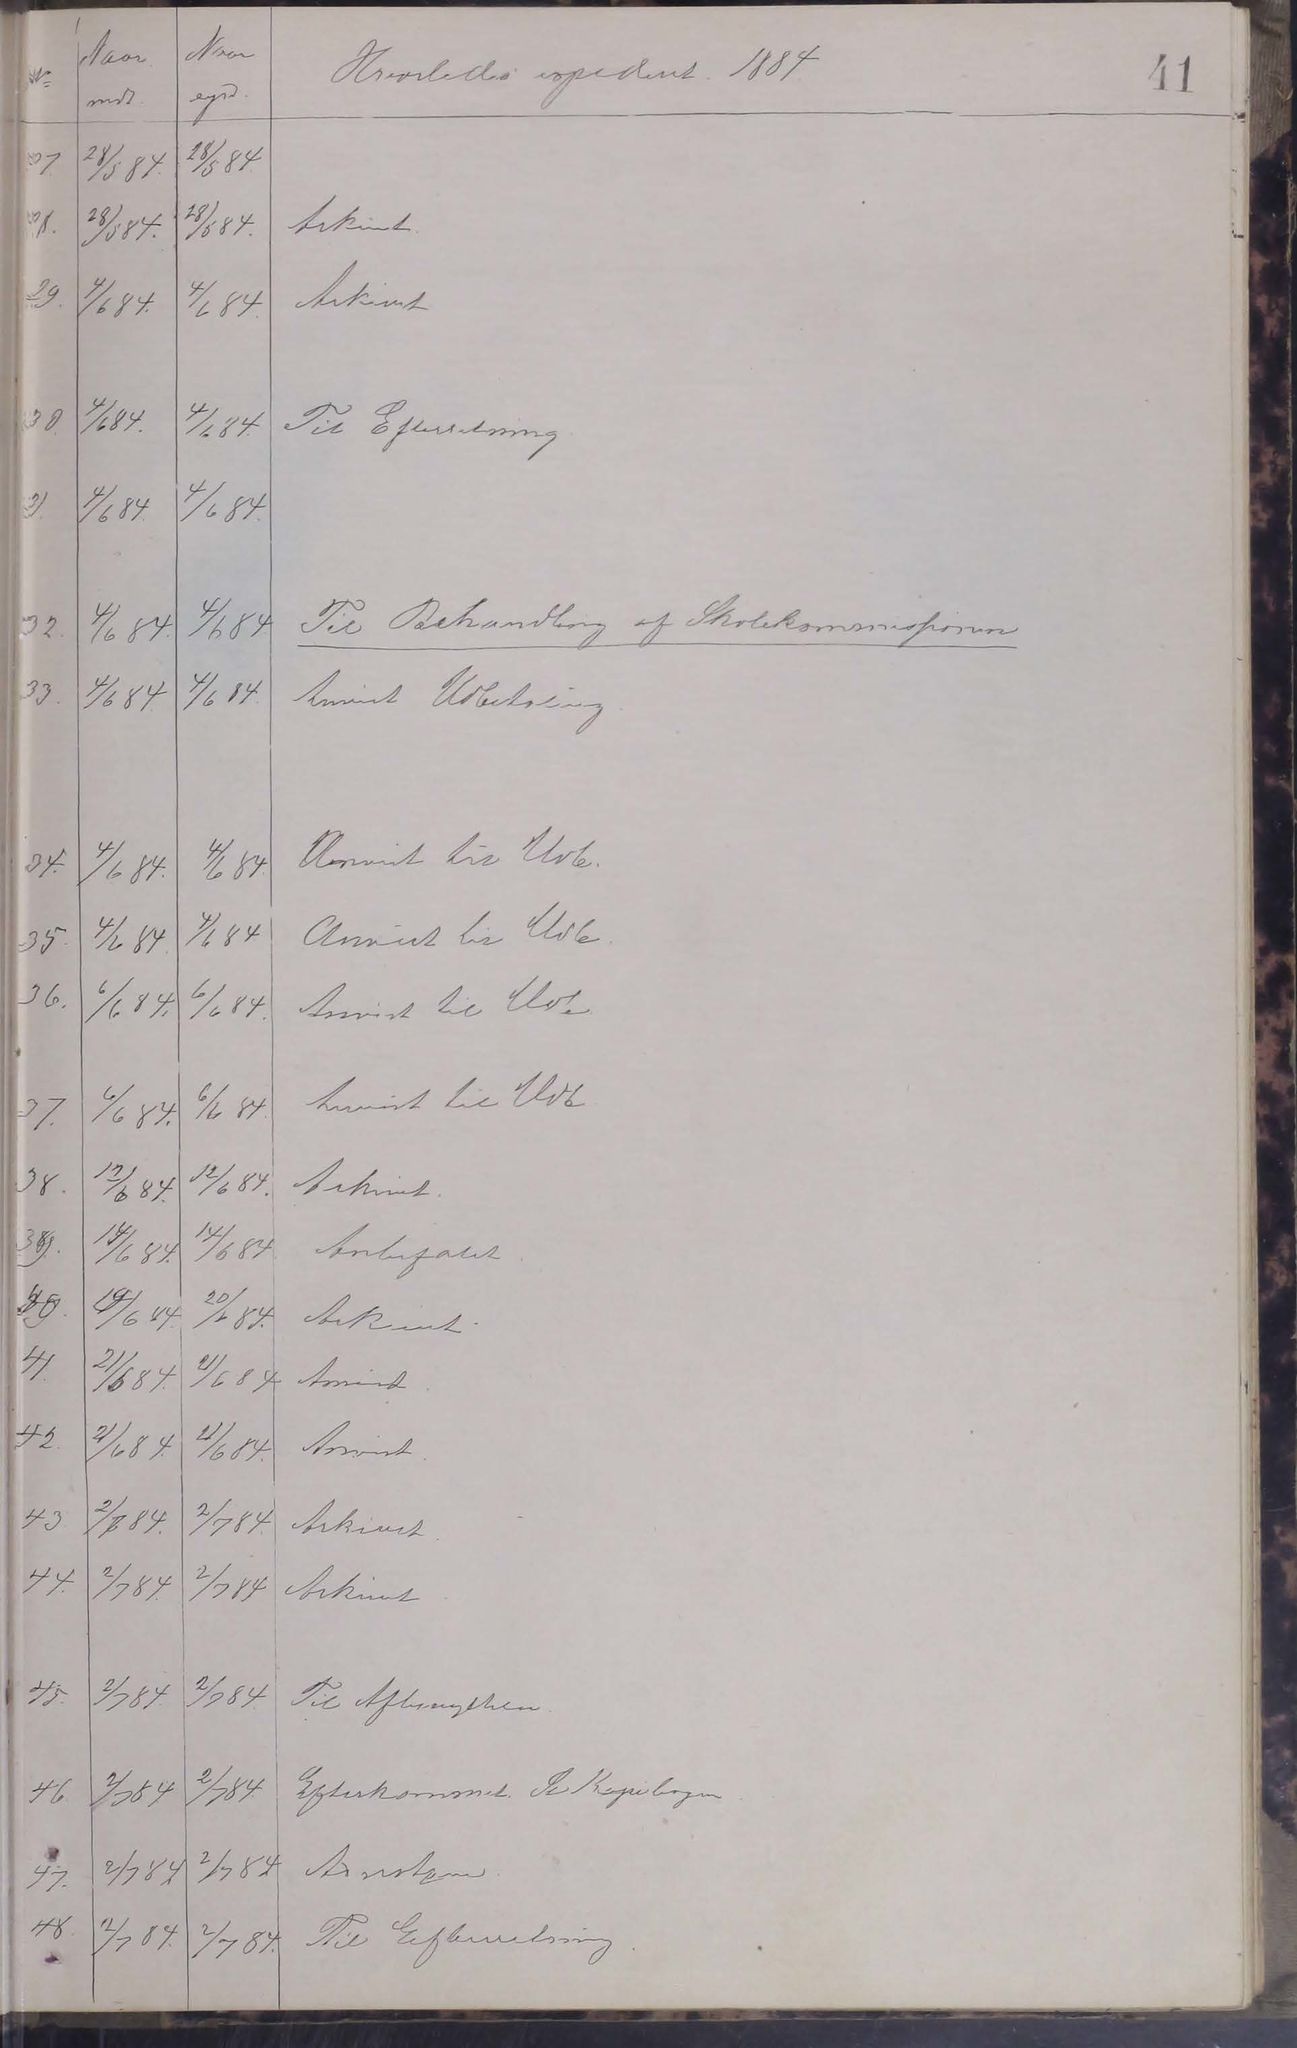 41
No Naar mdt. Naar expd. Hvorledes expedert. 1884
27. 28/5 84. 28/5 84.
28. 28/5 84. 28/5 84. Arkivert.
29. 4/6 84. 4/6 84. Arkivert
30. 4/6 84. 4/6 84. Til Efterretning
31. 4/6 84. 4/6 84.
32. 4/6 84. 4/6 84 Til Behandling af Skolekommissionen
33. 4/6 84 4/6 84. Anvist Udbetaling.
34. 4/6 84. 4/6 84. Anvist til Udb.
35. 4/6 84. 4/6 84 Anvist til Udb.
36. 6/6 84. 6/6 84. Anvist til Udb.
37. 6/6 84. 6/6 84. Anvist til Udb
38. 12/6 84. 12/6 84. Arkivert.
39. 14/6 84. 14/6 84 Anbefalet.
40. 19/6 84. 20/6 84. Arkivert.
41. 21/6 84. 21/6 84 Anvist.
42. 21/6 84. 21/6 84. Anvist.
43 2/7 84. 2/7 84. Arkivert.
44. 2/7 84. 2/7 84 Arkivert
45. 2/7 84. 2/7 84
46. 2/7 84 2/7 84 Efterkommet. Se Kopibogen.
47. 2/7 84 2/7 84
48. 2/7 84. 2/7 84. Til Efterretning.